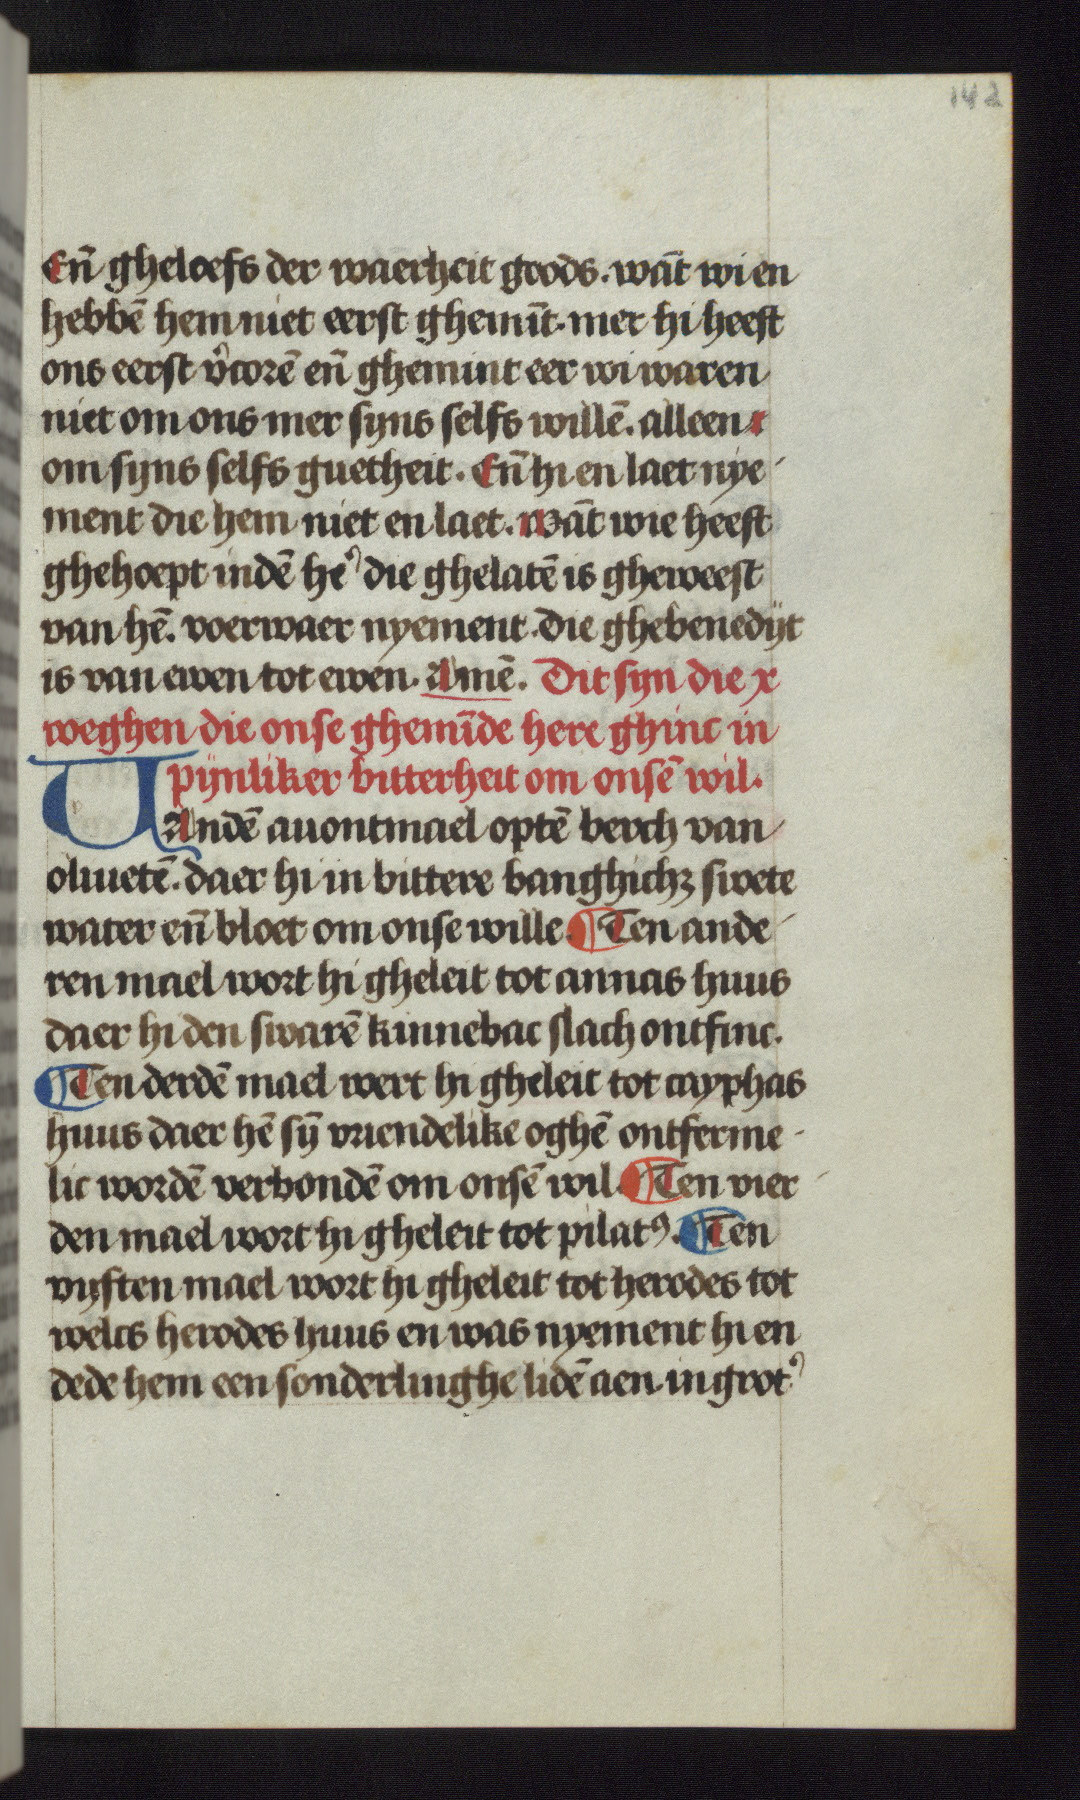 142
Eñ gheloefs der waerheit goods. wāt wi en
hebbē hem niet eerst ghemīt. mer hi heeft
ons eerst v͛corē eñ ghemint eer wi waren
niet om ons mer syns selfs willē. alleen
om syns selfs guetheit. Eñ hi en laet nye
ment die hem niet en laet. Wāt wie heeft
ghehoept indē he͛ die ghelatē is gheweest
van hē. voerwaer nyement. die ghebenedijt
is van ewen tot ewen. Amē. Dit syn die x
weghen die onse ghemīde here ghinc in
pijnliker bitterheit om onsē wil.
VAndē auontmael optē berch van
oliuetē. daer hi in bittere banghichꝫ swete
water eñ bloet om onse wille. ¶ Ten ande
ren mael wort hi gheleit tot annas huus
daer hi den swarē kinnebac slach ontfinc.
¶ Ten derdē mael wert hi gheleit tot cayphas
huus daer hē sȳ vriendelike oghē ontferme-
lic wordē verbondē om onsē wil. ¶ Ten vier
den mael wort hi gheleit tot pilatꝰ. ¶ Ten
vyften mael wort hi gheleit tot herodes tot
welcs herodes huus en was nyement hi en
dede hem een sonderlinghe lidē aen. in grot͛